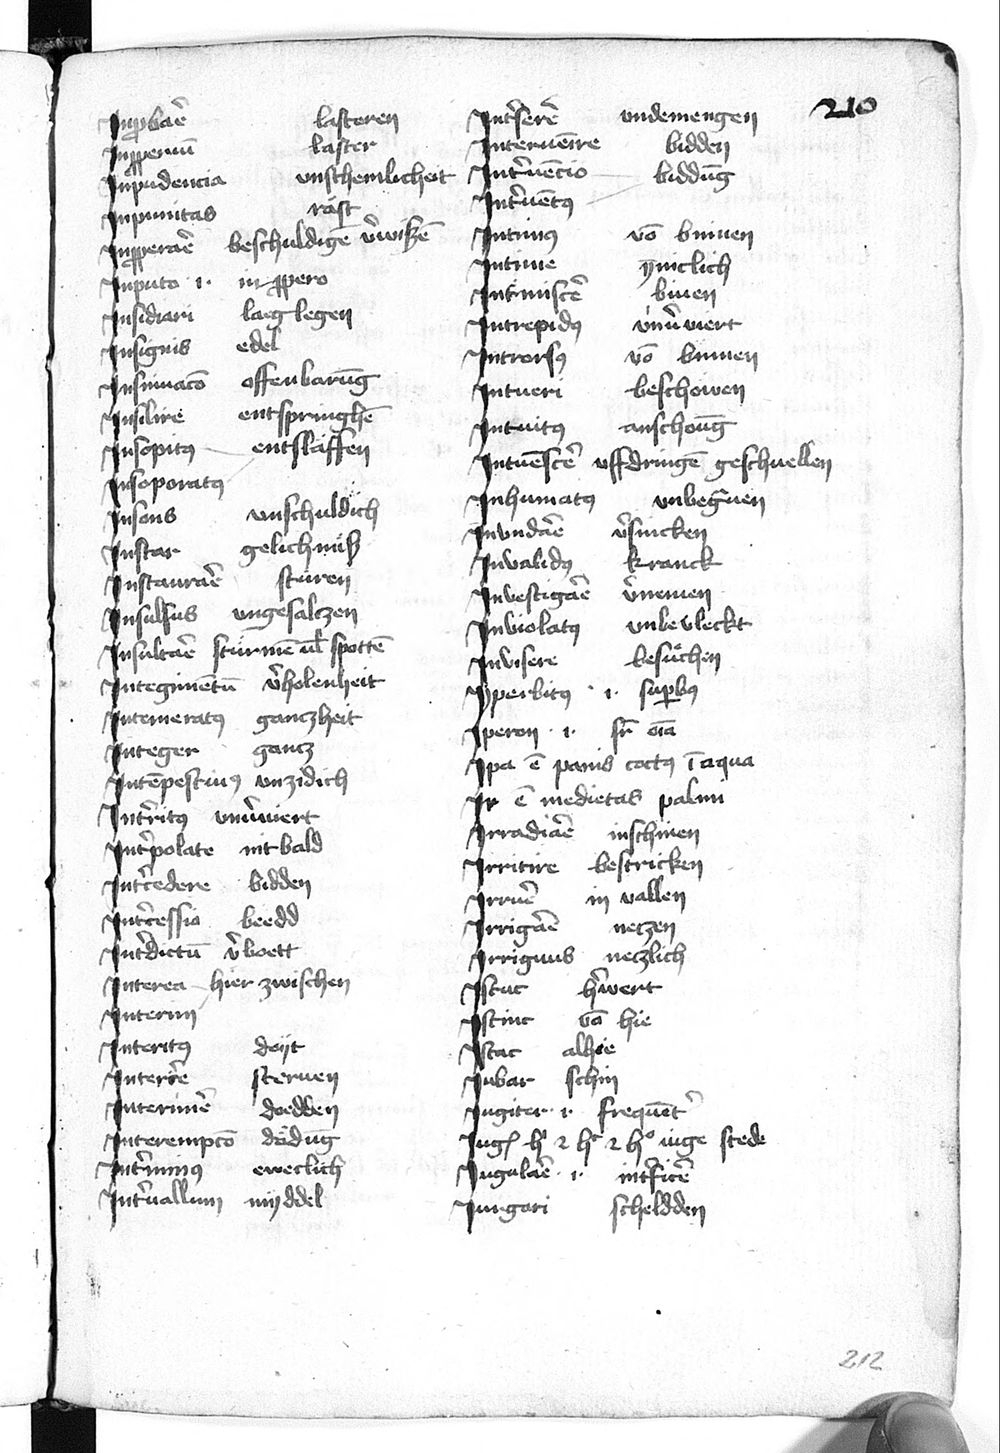 210
Inp̱bar̄e lasteren
Inp̱p̱erium̄ laster
Inpudencia vnschemlicheit
Inpunitas rast
Inp̱p̱erar̄e beschuldigē v̓wißē
Inputo .i. inp̱p̱ero
Insidiari laeglegen
Insignis edel
Insinuacō offenbarūg
Insilire entspringhē
Insopitꝰ entslaffen
Insoporatꝰ
Insons vnschuldich
Instar gelichniß
Instaurar̄e sturen
Insulsus vngesalczen
Insultar̄e sturmē vl̄ spottē
Integimētū v̓holenheit
Intemeratꝰ ganczheit
Integer gancz
Intēpestiuꝰ vnzidich
Int̓ritꝰ vnv̓wiert
Int̓polate nit bald
Int̓cedere bidden
Int̓cessio beedd
Int̓dictū v̓boett
Interea hier zwischen
Interim
Interitꝰ doijt
Interir̄e steruen
Interimer̄e doedden
Interempcō dodūg
Int̓minꝰ eweclich
Int̓uallum myddel
Int̓serer̄e vndemengen
Interuenire bidden
Int̓uēcio biddūg
Int̓uētꝰ
Intimꝰ vō binnen
Intime ynnclich
Intimiscer̄e binen
Intrepidꝰ vnv̓wiert
Introrsꝰ vō binnen
Intueri beschoiwen
Intuitꝰ anschoūg
Intuēscer̄e vffdringē geschwellen
Inhumatꝰ vnbeg̓uen
Invndar̄e v̓sincken
Invalidꝰ kranck
Investigar̄e v̓nemen
Inviolatꝰ vnbevleckt
Invisere besuchen
Yperbitꝰ .i. suꝑbꝰ
Iperon .i. sr̄ oīa
Ipa ē panis coctꝰ ī aqua
Ir ē medietas palmi
Irradiar̄e inschinen
Irritire bestricken
Irruer̄e in vallen
Irrigar̄e neczen
Irriguus neczlich
Istuc h̓wert
Istinc vā hie
Istac alhie
Iubar schin
Iugiter .i. frequēt̓
Iugalar̄e .i. int̓ficer̄e
Iurgari scheldden
212